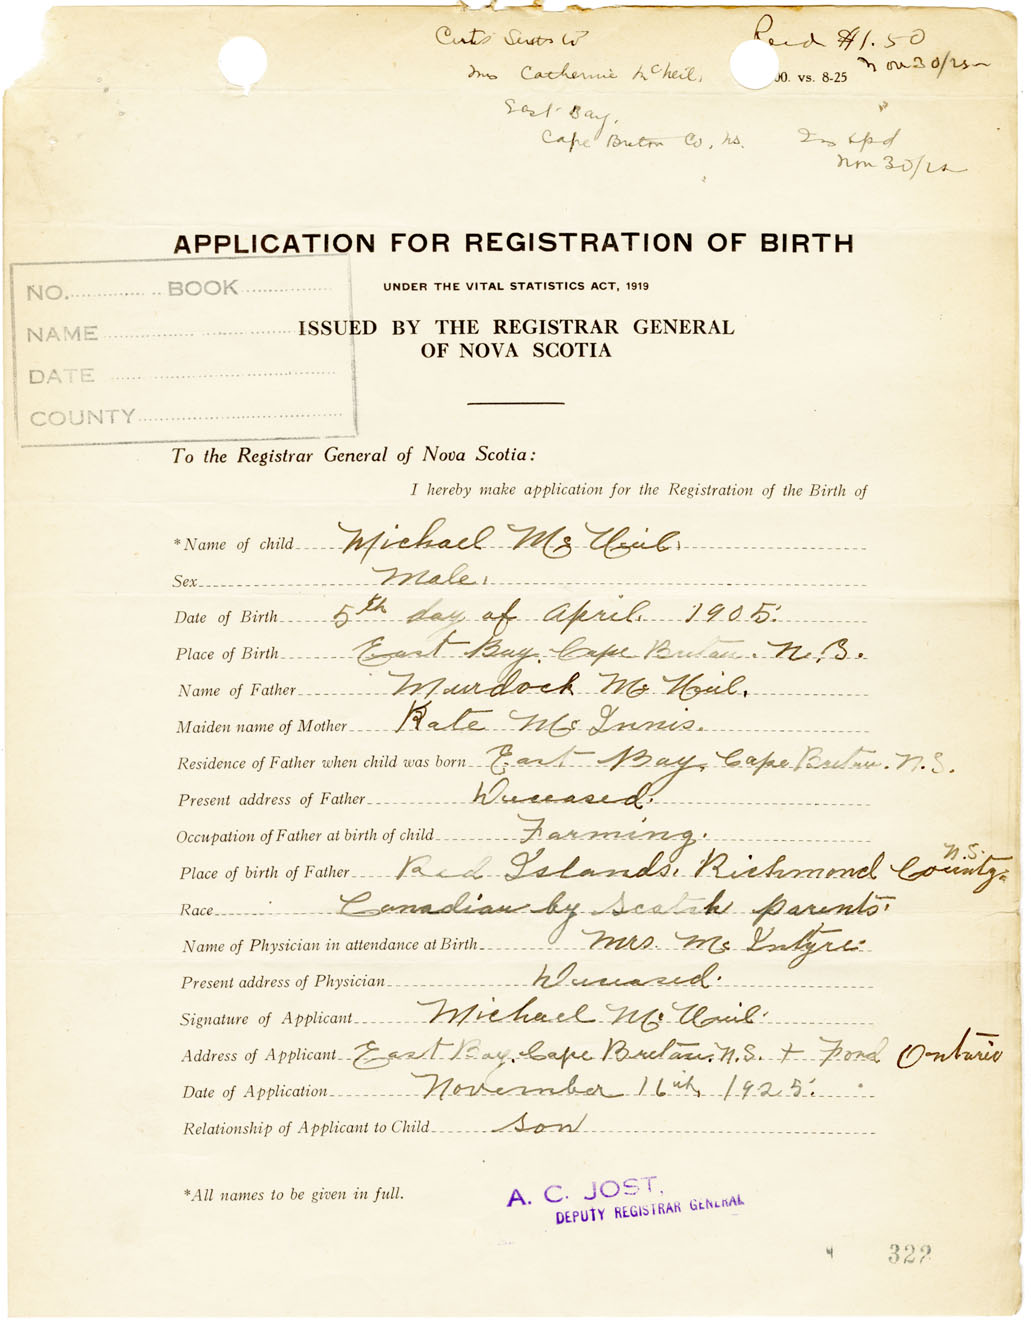 Certs Sent to Recd $1.50
Mrs Catherine McNeil, 00. vs. 8-25 Nov 30/25
East Bay,
Cape Breton Co, N.S.
Nov 30/25
APPLICATION FOR REGISTRATION OF BIRTH
UNDER THE VITAL STATISTICS ACT, 1919
ISSUED BY THE REGISTRAR GENERAL
OF NOVA SCOTIA
NO. BOOK
NAME
DATE
COUNTY
To the Registrar General of Nova Scotia:
I hereby make application for the Registration of the Birth of
*Name of child Michael McNeil.
Sex Male.
Date of Birth 5th day of April. 1905.
Place of Birth East Bay, Cape Breton. N.S.
Name of Father Murdock McNeil.
Maiden name of Mother Kate McInnis.
Residence of Father when child was born East Bay, Cape Breton. N.S.
Present address of Father Deceased.
Occupation of Father at birth of child Farming.
Place of birth of Father Red Islands, Richmond County N.S.
Race Canadian by Scotch parents.
Name of Physician in attendance at Birth Mrs. McIntyre.
Present address of Physician Deceased.
Signature of Applicant Michael McNeil.
Address of Applicant East Bay, Cape Breton. N.S. + Ford Ontario
Date of Application November 16th, 1925.
Relationship of Applicant to Child son
*All names to be given in full.
A. C. JOST,
DEPUTY REGISTRAR GENERAL
322